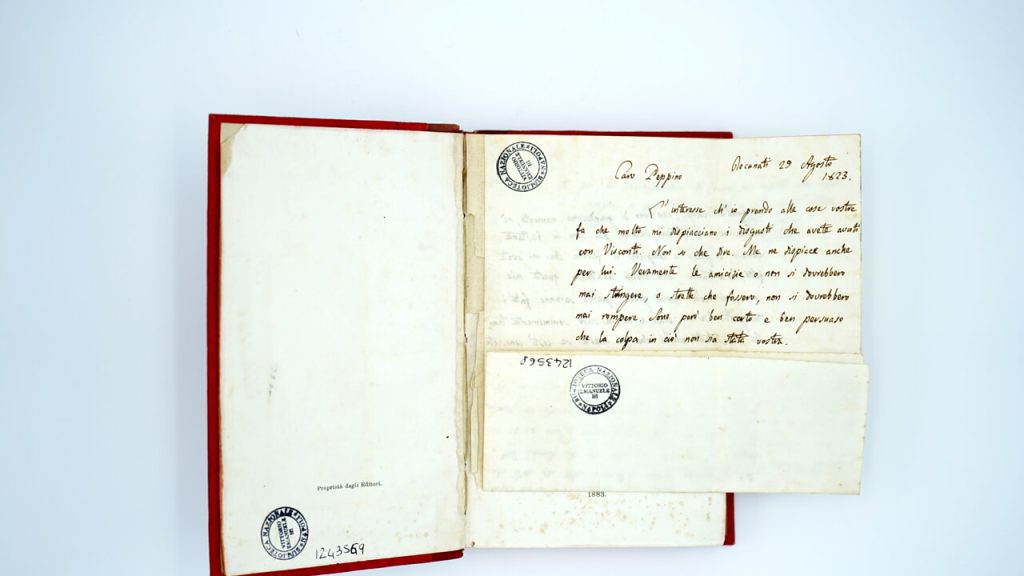 Proprietà dagli Editori.
BIBLIOTECA NAZIONALE NAPOLI
VITTORIO
EMANUELE
III
1243569
BIBLIOTECA NAZIONALE NAPOLI
VITTORIO
EMANUELE
III
Recanati 29 Agosto
1823.
Caro Peppino
L'interesse ch'io prendo alle cose vostre
fa che molto mi dispiacciano i disgusti che avete avuti
con Visconti. Non so che dire. Me ne dispiace anche
per lui. Veramente le amicizie o non si dovrebbero
mai stringere, o strette che fossero, non si dovrebbero
mai rompere. Sono però ben certo e ben persuaso
che la colpa in ciò non sia stata vostra.
1243568
BIBLIOTECA NAZIONALE NAPOLI
VITTORIO
EMANUELE
III
1883.